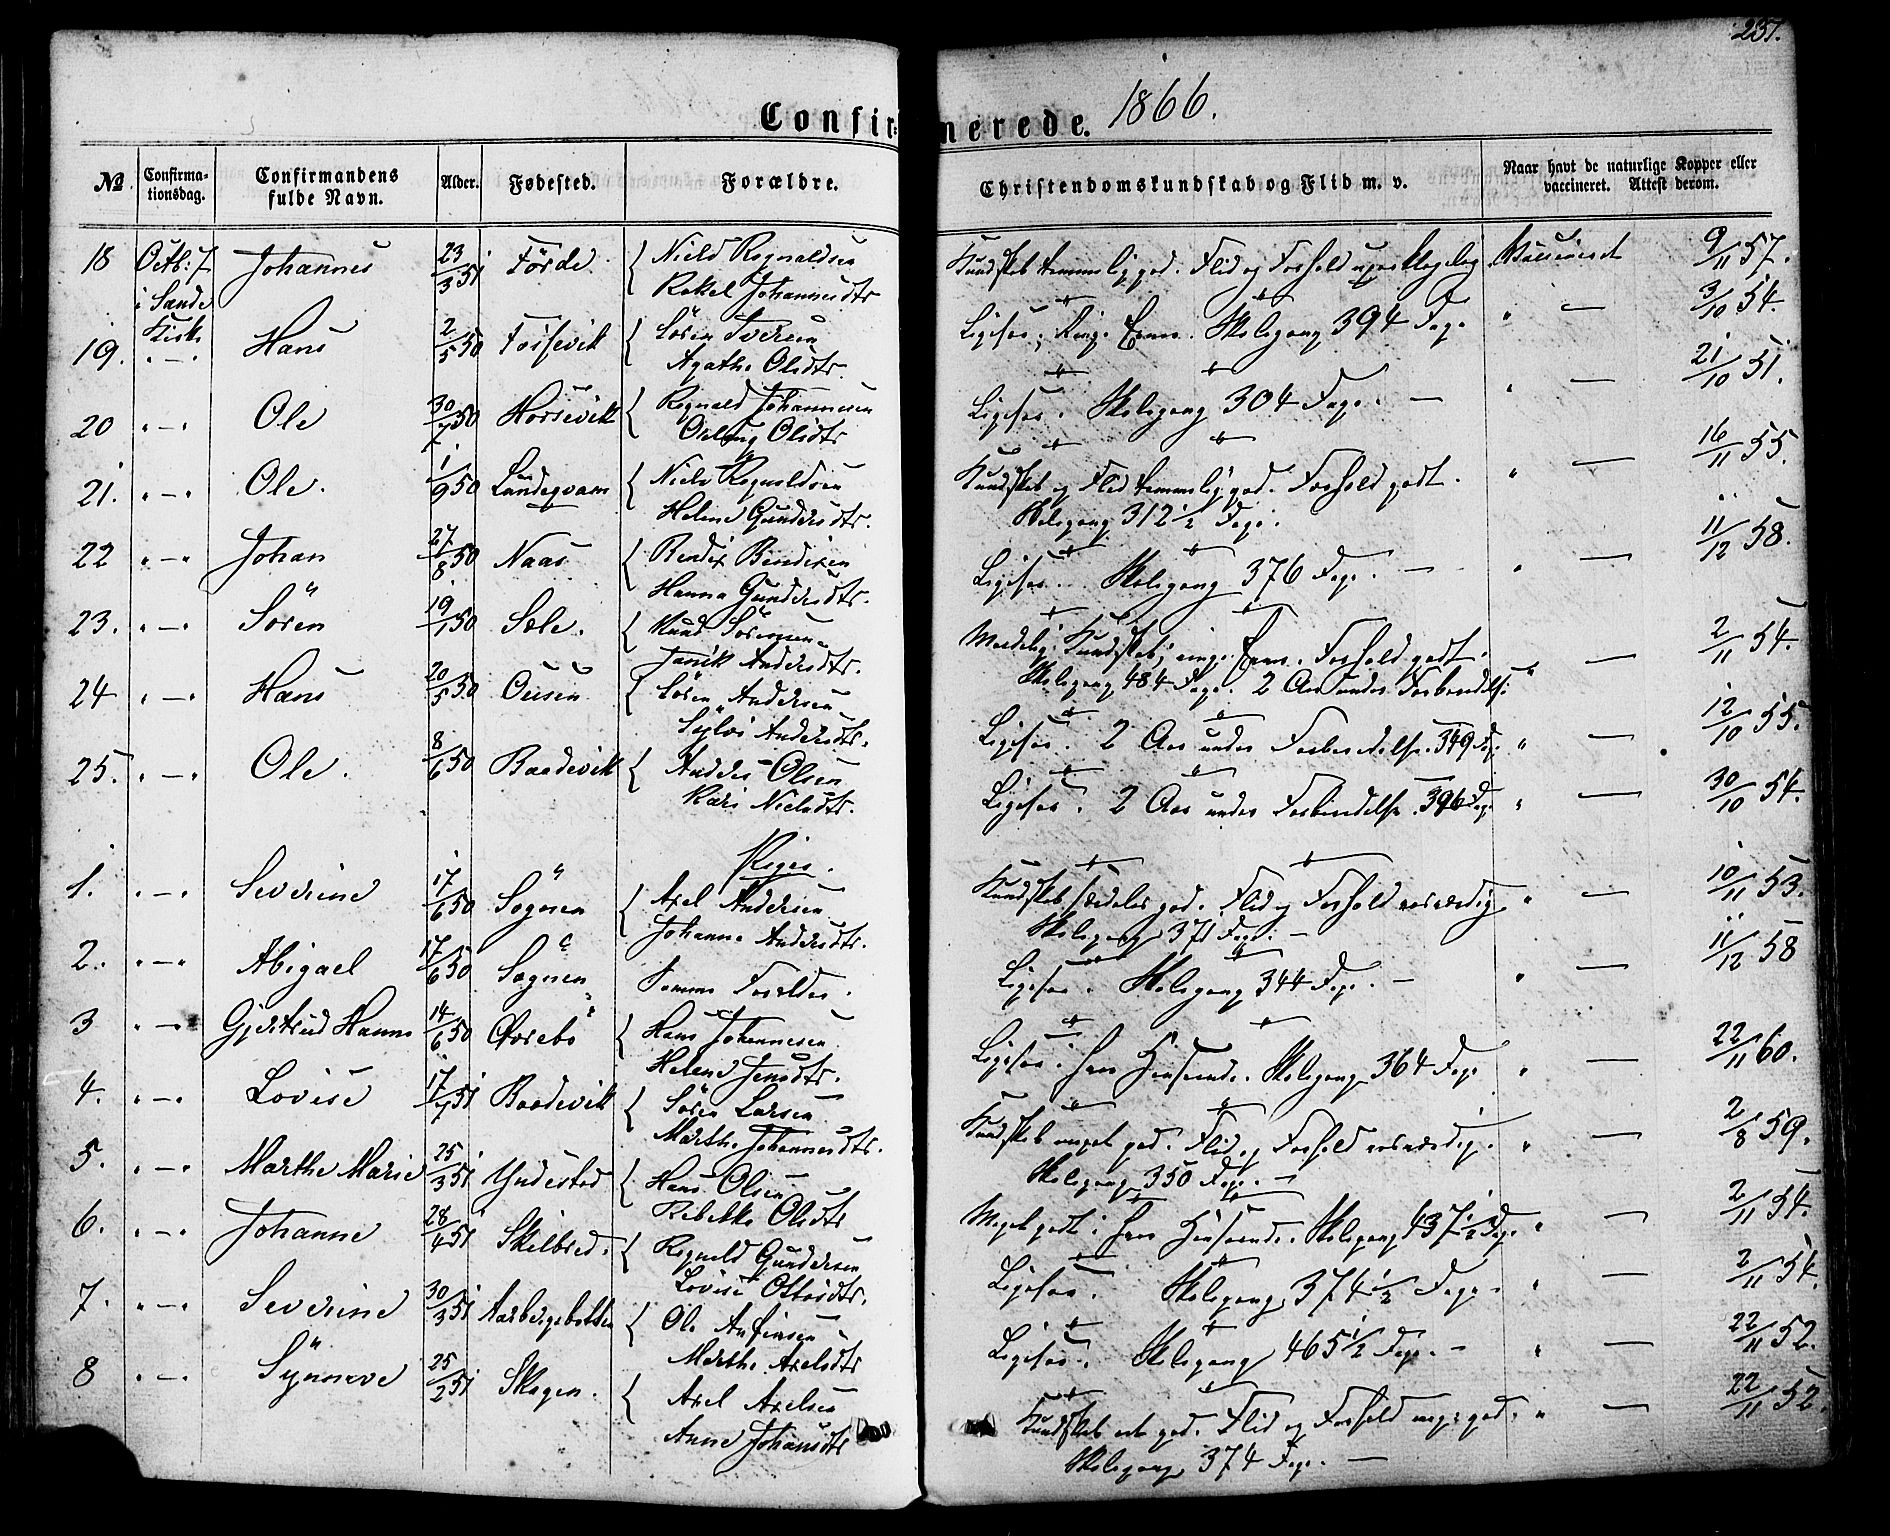 237.
Confirmerede. 1866.
№ Confirmationsdag. Confirmandens fulde Navn. Alder. Fødested. Forældre. Christendomskundskab og Flid m. v. Naar havt de naturlige Kopper eller vaccineret. Attest derom.
18 Octb: 7 i Sande Kirke Johannes 23/3 51 Förde { Niels Regnaldsen Rakel Johannesdtr Kundskab temmelig god. Flid og Forhold upaaklagelig Vaccineret 9/11 57.
19. " — " Hans 2/5 50 { Sören Iversen Agathe Olsdtr. Ligesaa; ringe Evner. Skolegang 394 Dage " — 3/10 54.
20 " — " Ole 30/7 50 Horsevik { Regnald Johannesen Olsdtr Ligesaa. Skolegang 304 Dage. — " — 21/10 51.
21. " — " Ole. 1/9 50 Landeqvam { Niels Regnaldsen Helene Gundersdtr. Kundskab og Flid temmelig god. Forhold godt. " — 16/11 55.
Skolegang 312 1/2 Dage.
22 " — " Johan 27/8 50 Naas { Bendix Bendixen Hanna Gundersdtr. Ligesaa. Skolegang 376 Dage. — " — 11/12 58.
23. " — " Sören 19/1 50 Sæle. { Knud Sörensen Andersdtr. Maadelig Kundskab; ringe Evner. Forhold godt. " — 2/11 54.
Skolegang 484 Dage. 2 Aar under Forberedelse
24 " — " Hans 20/5 50 Ousen { Sören Andersen Andersdtr. Ligesaa. 2 Aar under Forberedelse. 349 Dage " — 12/10 55.
25. " — " Ole. 8/6 50 Baadevik { Anders Olsen Kari Nielsdtr. Ligesaa. 2 Aar under Forberedelse. 396 Dage " — 30/10 54.
Piger.
1. " — " Severine 17/6 50 Sognen { Axel Andersen Johanna Andersdtr. Kundskab særdeles god. Flid og Forhold rosværdig " — 10/11 53.
Skolegang 371 Dage. —
2. " — " Abigael 17/6 50 Sognen Samme Forældre. Ligesaa. Skolegang 344 Dage. — " — 11/12 58
3 " — " Gjertrud Hanna 14/6 50 Övrebö { Hans Johannesen Helene Jensdtr. Ligesaa. Skolegang 364 Dage " — 22/11 60.
4. " — " Lovise 17/7 51 Baadevik { Sören Larsen Marthe Johannesdtr. Kundskab meget god. Flid og Forhold rosværdig. " — 2/8 59.
Skolegang 350 Dage. —
5. " — " Marthe Marie 25/3 51 Yndestad { Hans Olsen Rebekka Olsdtr Meget godt i Skolegang 437 1/2 Dage " — 2/11 54.
6. " — " Johanne 28/4 51 Skilbred. { Regnald Gundersen Lovise Ottesdtr. Ligesaa. Skolegang 374 1/2 Dage. " — 2/11 54.
7. " — " Severine 30/3 51 Aarbergsbotten { Ole Anfinsen Marthe Axelsdtr Ligesaa. Skolegang 465 1/2 Dage. — " — 22/11 52.
8 " — " Synneve 25/2 51 Skogen. { Axel Axelsen Anne Johansdtr Kundskab god. Flid og Forhold meget god. " — 22/11 52.
Skolegang 374 Dage. —